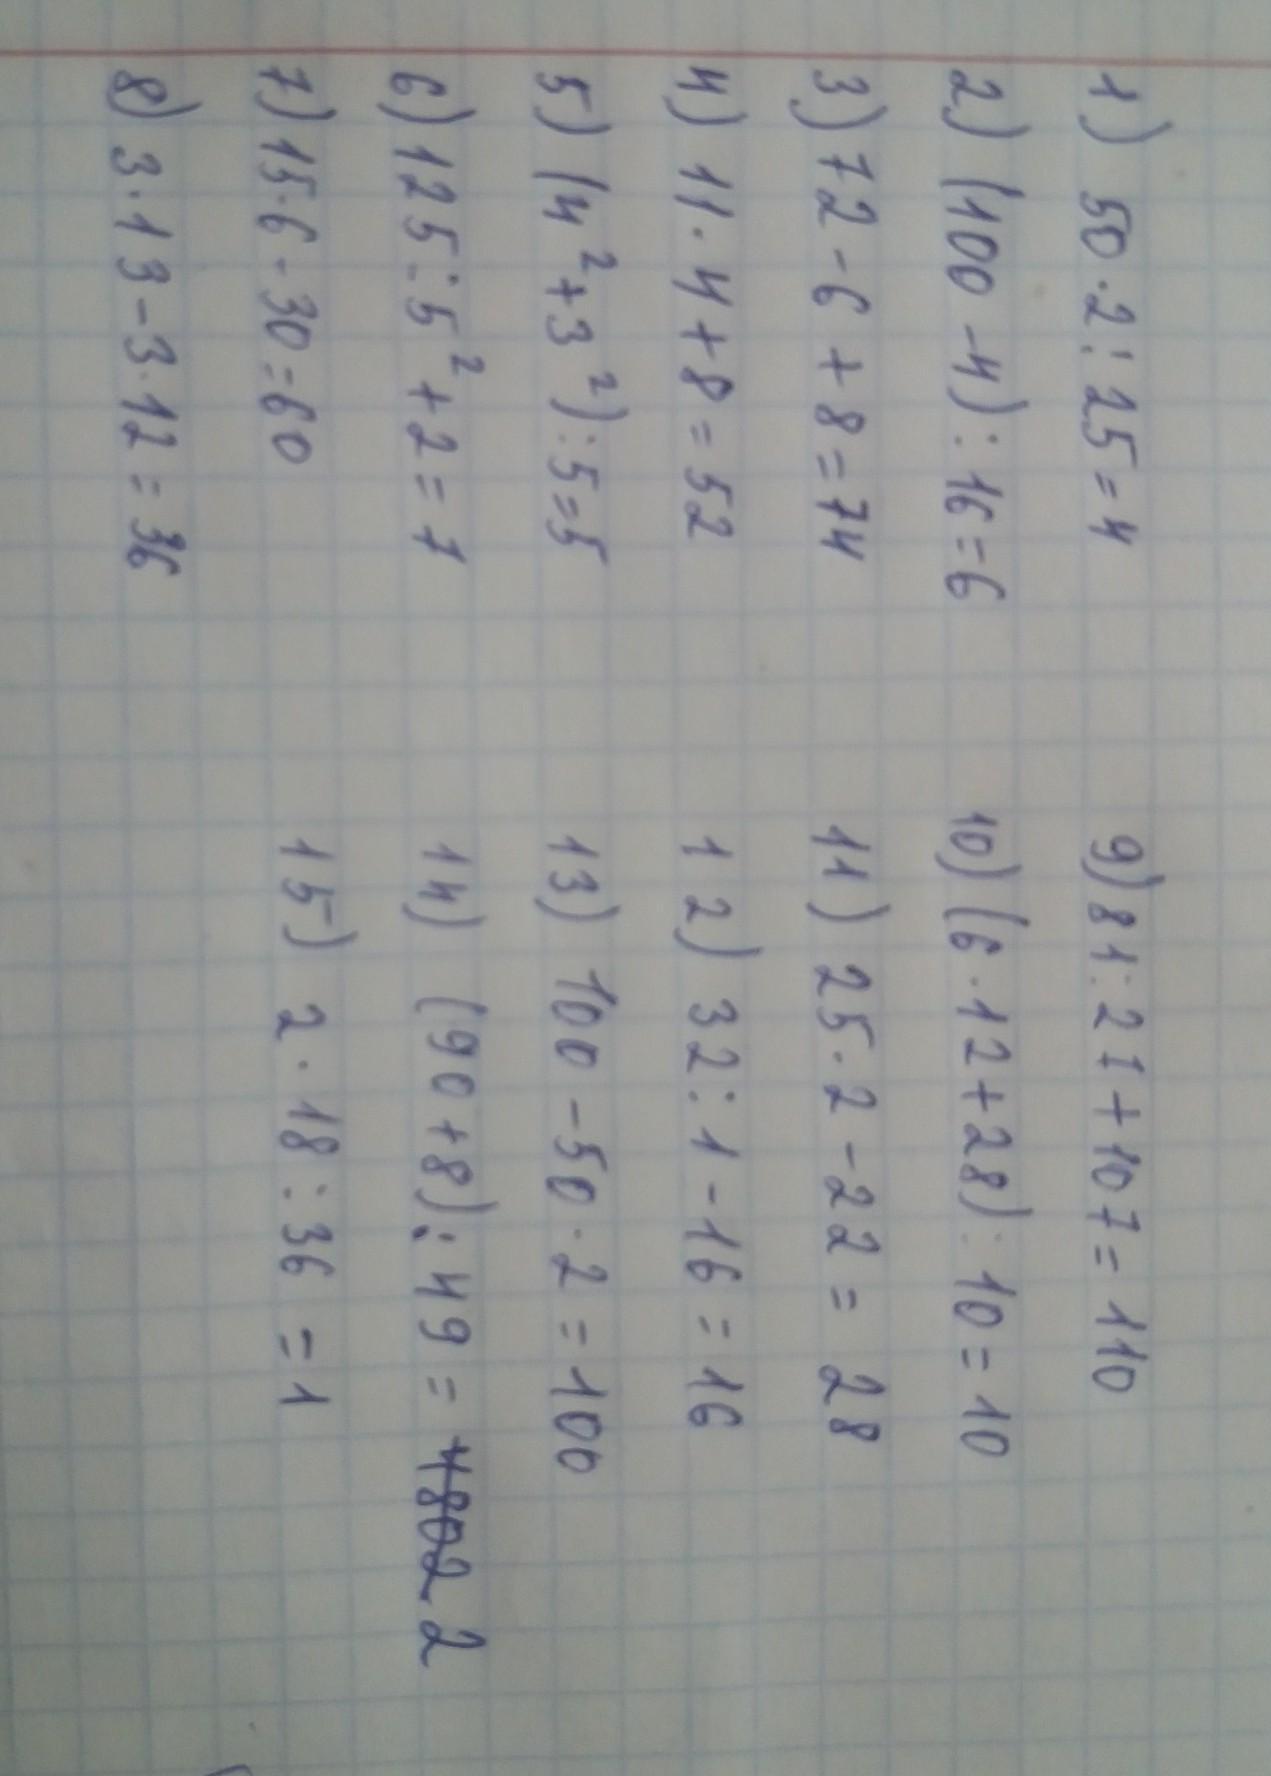 1) 50 · 2 : 25 = 4
2) (100 - 4) : 16 = 6
3) 72 - 6 + 8 = 74
4) 11 · 4 + 8 = 52
5) (4² + 3²) : 5 = 5
6) 125 : 5² + 2 = 7
7) 15 · 6 - 30 = 60
8) 3 · 13 - 3 · 12 = 36
9) 81 : 27 + 107 = 110
10) (6 · 12 + 28) : 10 = 10
11) 25 · 2 - 22 = 28
12) 32 : 1 - 16 = 16
13) 100 - 50 · 2 = 100
14) (90 + 8) : 49 = 4802 2
15) 2 · 18 : 36 = 1